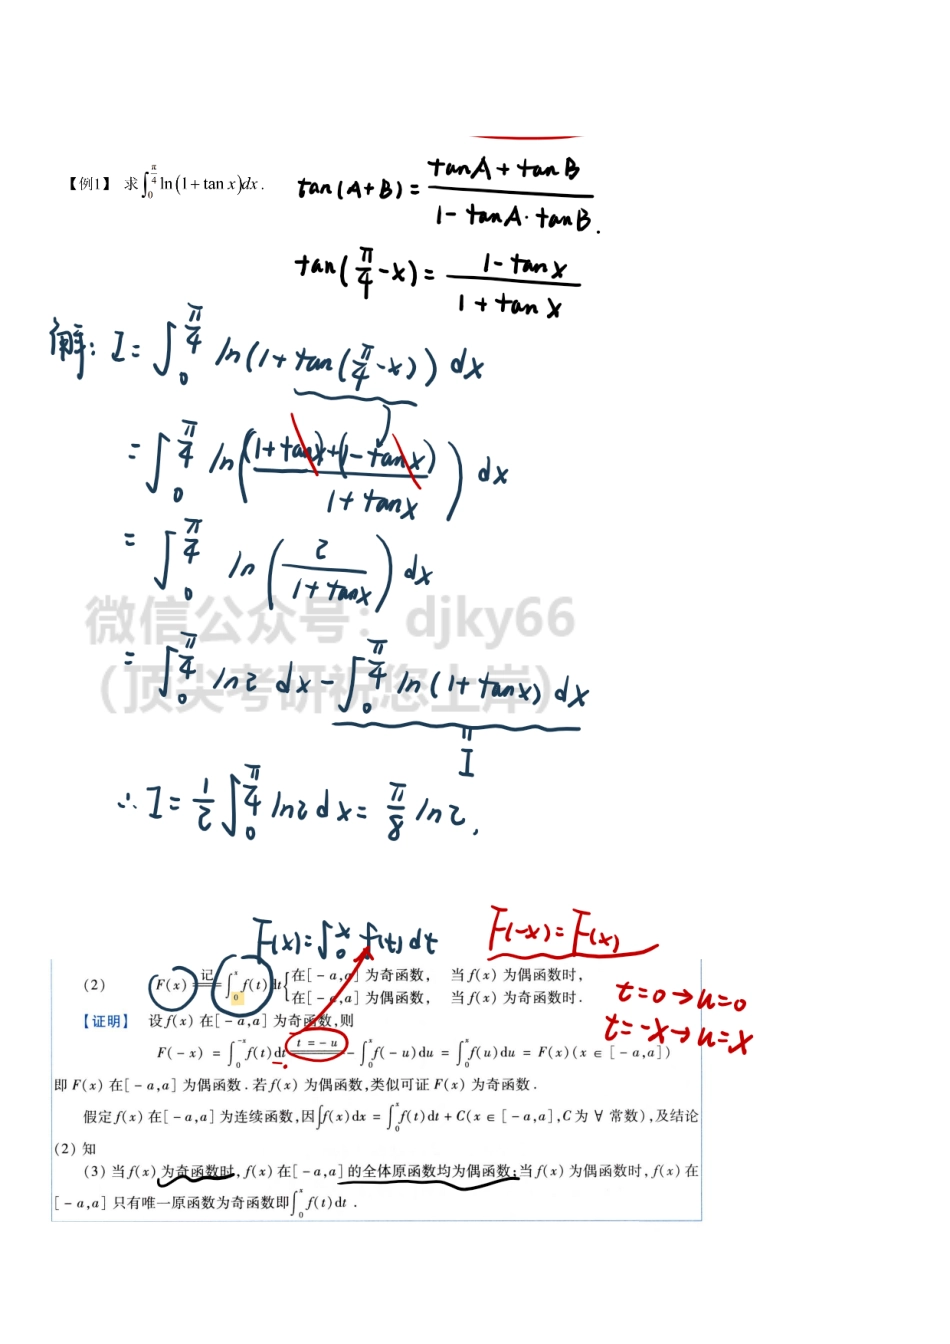 【例1】 求∫₀^{π/4} ln(1+tan x)dx.
tan(A+B)= (tanA+tanB)/(1-tanA·tanB).
tan(π/4-x)= (1-tanx)/(1+tanx)
解: I=∫₀^{π/4} ln(1+tan(π/4-x)) dx
=∫₀^{π/4} ln( ((1+tanx)+(1-tanx))/(1+tanx) ) dx
=∫₀^{π/4} ln( 2/(1+tanx) ) dx
微信公众号：djky66
=∫₀^{π/4} ln2 dx-∫₀^{π/4} ln(1+tanx) dx
（顶尖考研祝您上岸）
I
∴ I= 1/2 ∫₀^{π/4} ln2 dx= π/8 ln2.
F(x)=∫₀^x f(t)dt F(-x)=F(x)
(2) F(x) 记 ∫₀^x f(t)dt { 在[-a,a]为奇函数， 当f(x)为偶函数时，
在[-a,a]为偶函数， 当f(x)为奇函数时.
t=0→u=0
【证明】 设f(x)在[-a,a]为奇函数,则
t=-x→u=x
F(-x) = ∫₀^{-x} f(t)dt t=-u -∫₀^x f(-u)du = ∫₀^x f(u)du = F(x)(x∈[-a,a])
即F(x)在[-a,a]为偶函数.若f(x)为偶函数,类似可证F(x)为奇函数.
假定f(x)在[-a,a]为连续函数,因∫f(x)dx = ∫₀^x f(t)dt + C(x∈[-a,a],C为∀常数),及结论
(2)知
(3)当f(x)为奇函数时,f(x)在[-a,a]的全体原函数均为偶函数;当f(x)为偶函数时,f(x)在
[-a,a]只有唯一原函数为奇函数即∫₀^x f(t)dt.